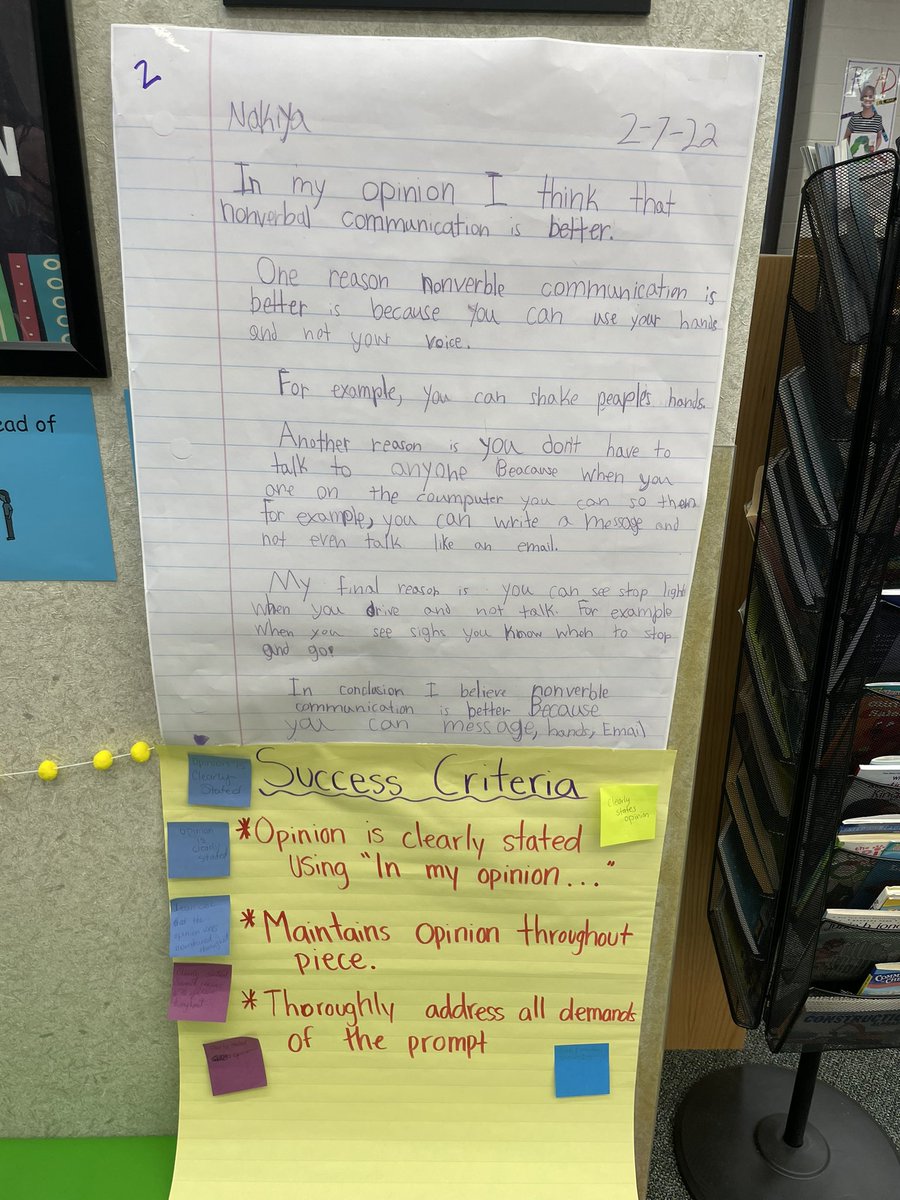 2
Nakiya 2-7-22
In my opinion I think that
nonverbal communication is better.
One reason nonverble communication is
better is because you can use your hands
and not your voice.
For example, you can shake peaple's hands.
Another reason is you don't have to
talk to anyone Beacause when you
are on the coumputer you can so them
For example, you can write a message and
not even talk like an email.
My final reason is you can see stop light
when you drive and not talk. For example
when you see sighs you know when to stop
and go!
In conclusion I believe nonverble
communication is better Because
you can message, hands, Email
Success Criteria
*Opinion is clearly stated
Using "In my opinion..."
*Maintains opinion throughout
piece.
*Thoroughly address all demands
of the prompt
opinion is
clearly
stated
opinion
is
clearly
stated
clearly
states
opinion
that the
opinion was
ead of
N